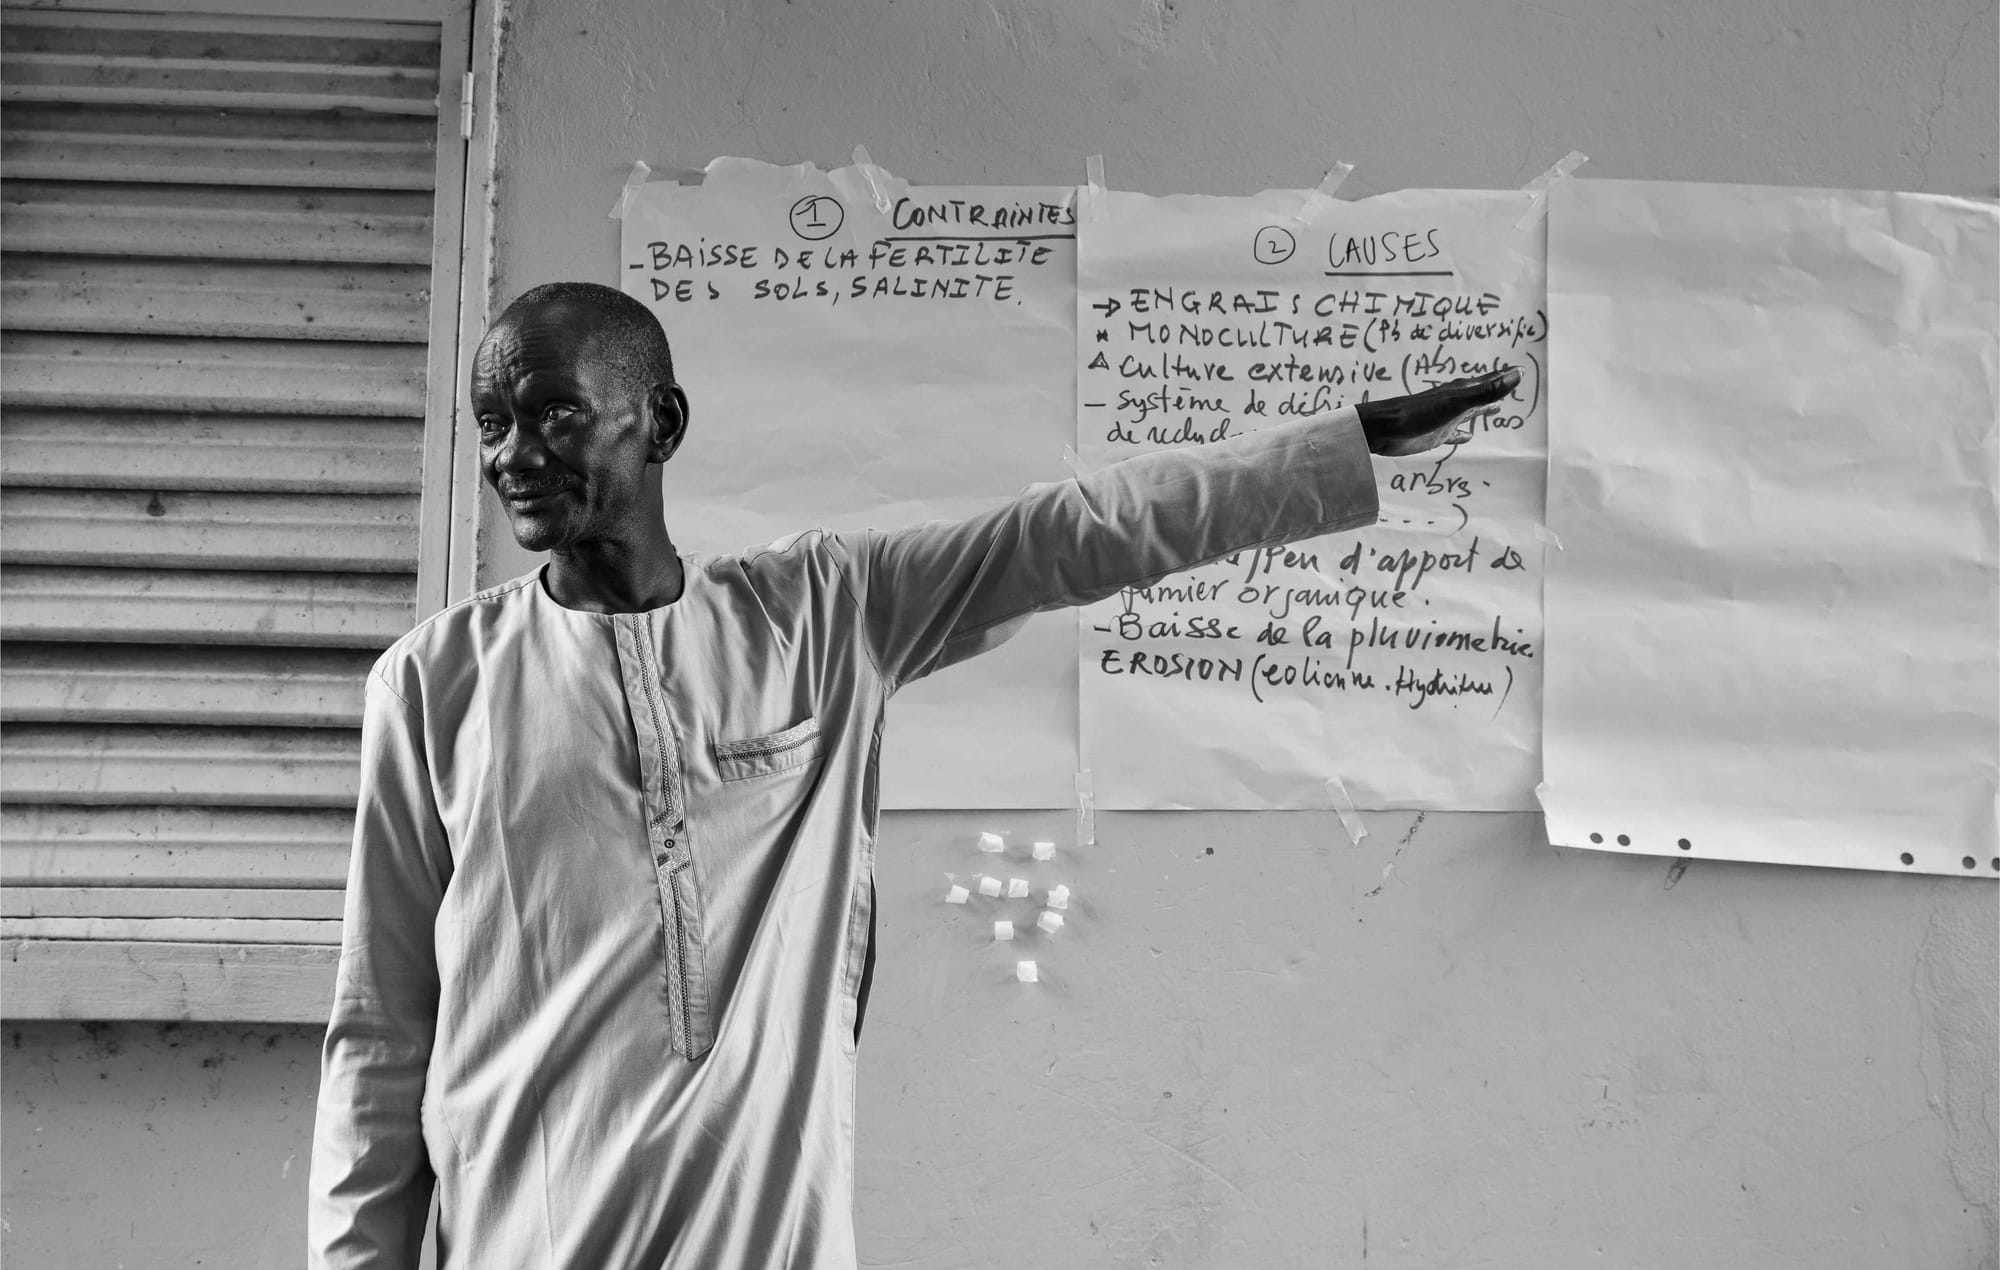 1 CONTRAINTES
- BAISSE DE LA FERTILITE
DES SOLS, SALINITE.
2 CAUSES
→ ENGRAIS CHIMIQUE
* MONOCULTURE (Pb de diversific)
Culture extensive (Absence
- système de
de
arbrs.
...)
Peu d'apport de
fumier organique.
- Baisse de la pluviometrie
EROSION (eolienne. Hydrique)